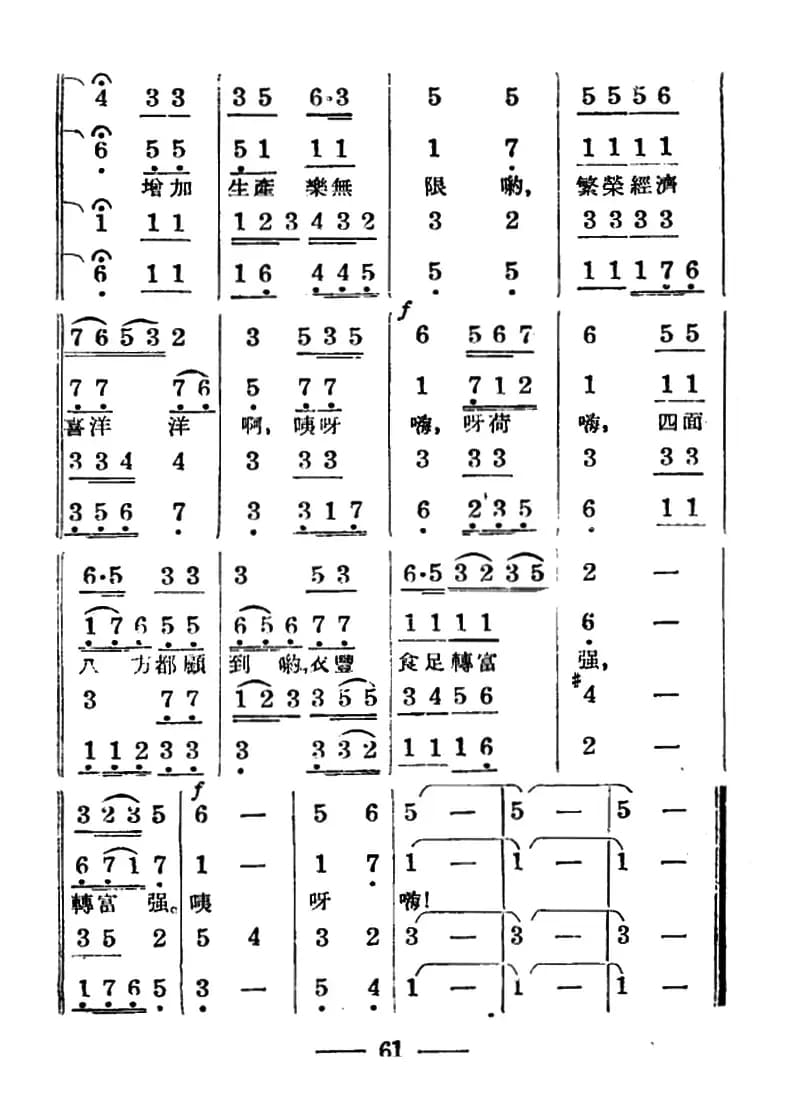 4 3 3 3 5 6·3 5 5 5 5 5 6
6 5 5 5 1 1 1 1 7 1 1 1 1
增加 生產 樂無 限 喲, 繁榮經濟
1 1 1 1 2 3 4 3 2 3 2 3 3 3 3
6 1 1 1 6 4 4 5 5 5 1 1 1 7 6
f
7 6 5 3 2 3 5 3 5 6 5 6 7 6 5 5
7 7 7 6 5 7 7 1 7 1 2 1 1 1
喜洋 洋 啊, 咦呀 嗨, 呀荷 嗨, 四面
3 3 4 4 3 3 3 3 3 3 3 3 3
3 5 6 7 3 3 1 7 6 2 3 5 6 1 1
6·5 3 3 3 5 3 6·5 3 2 3 5 2 —
1 7 6 5 5 6 5 6 7 7 1 1 1 1 6 —
八 方都顧 到 喲,衣豐 食足轉富 强,
3 7 7 1 2 3 3 5 5 3 4 5 6 #4 —
1 1 2 3 3 3 3 3 2 1 1 1 6 2 —
f
3 2 3 5 6 — 5 6 5 — 5 — 5 —
6 7 1 7 1 — 1 7 1 — 1 — 1 —
轉富 强。咦 呀 嗨!
3 5 2 5 4 3 2 3 — 3 — 3 —
1 7 6 5 3 — 5 4 1 — 1 — 1 —
— 61 —